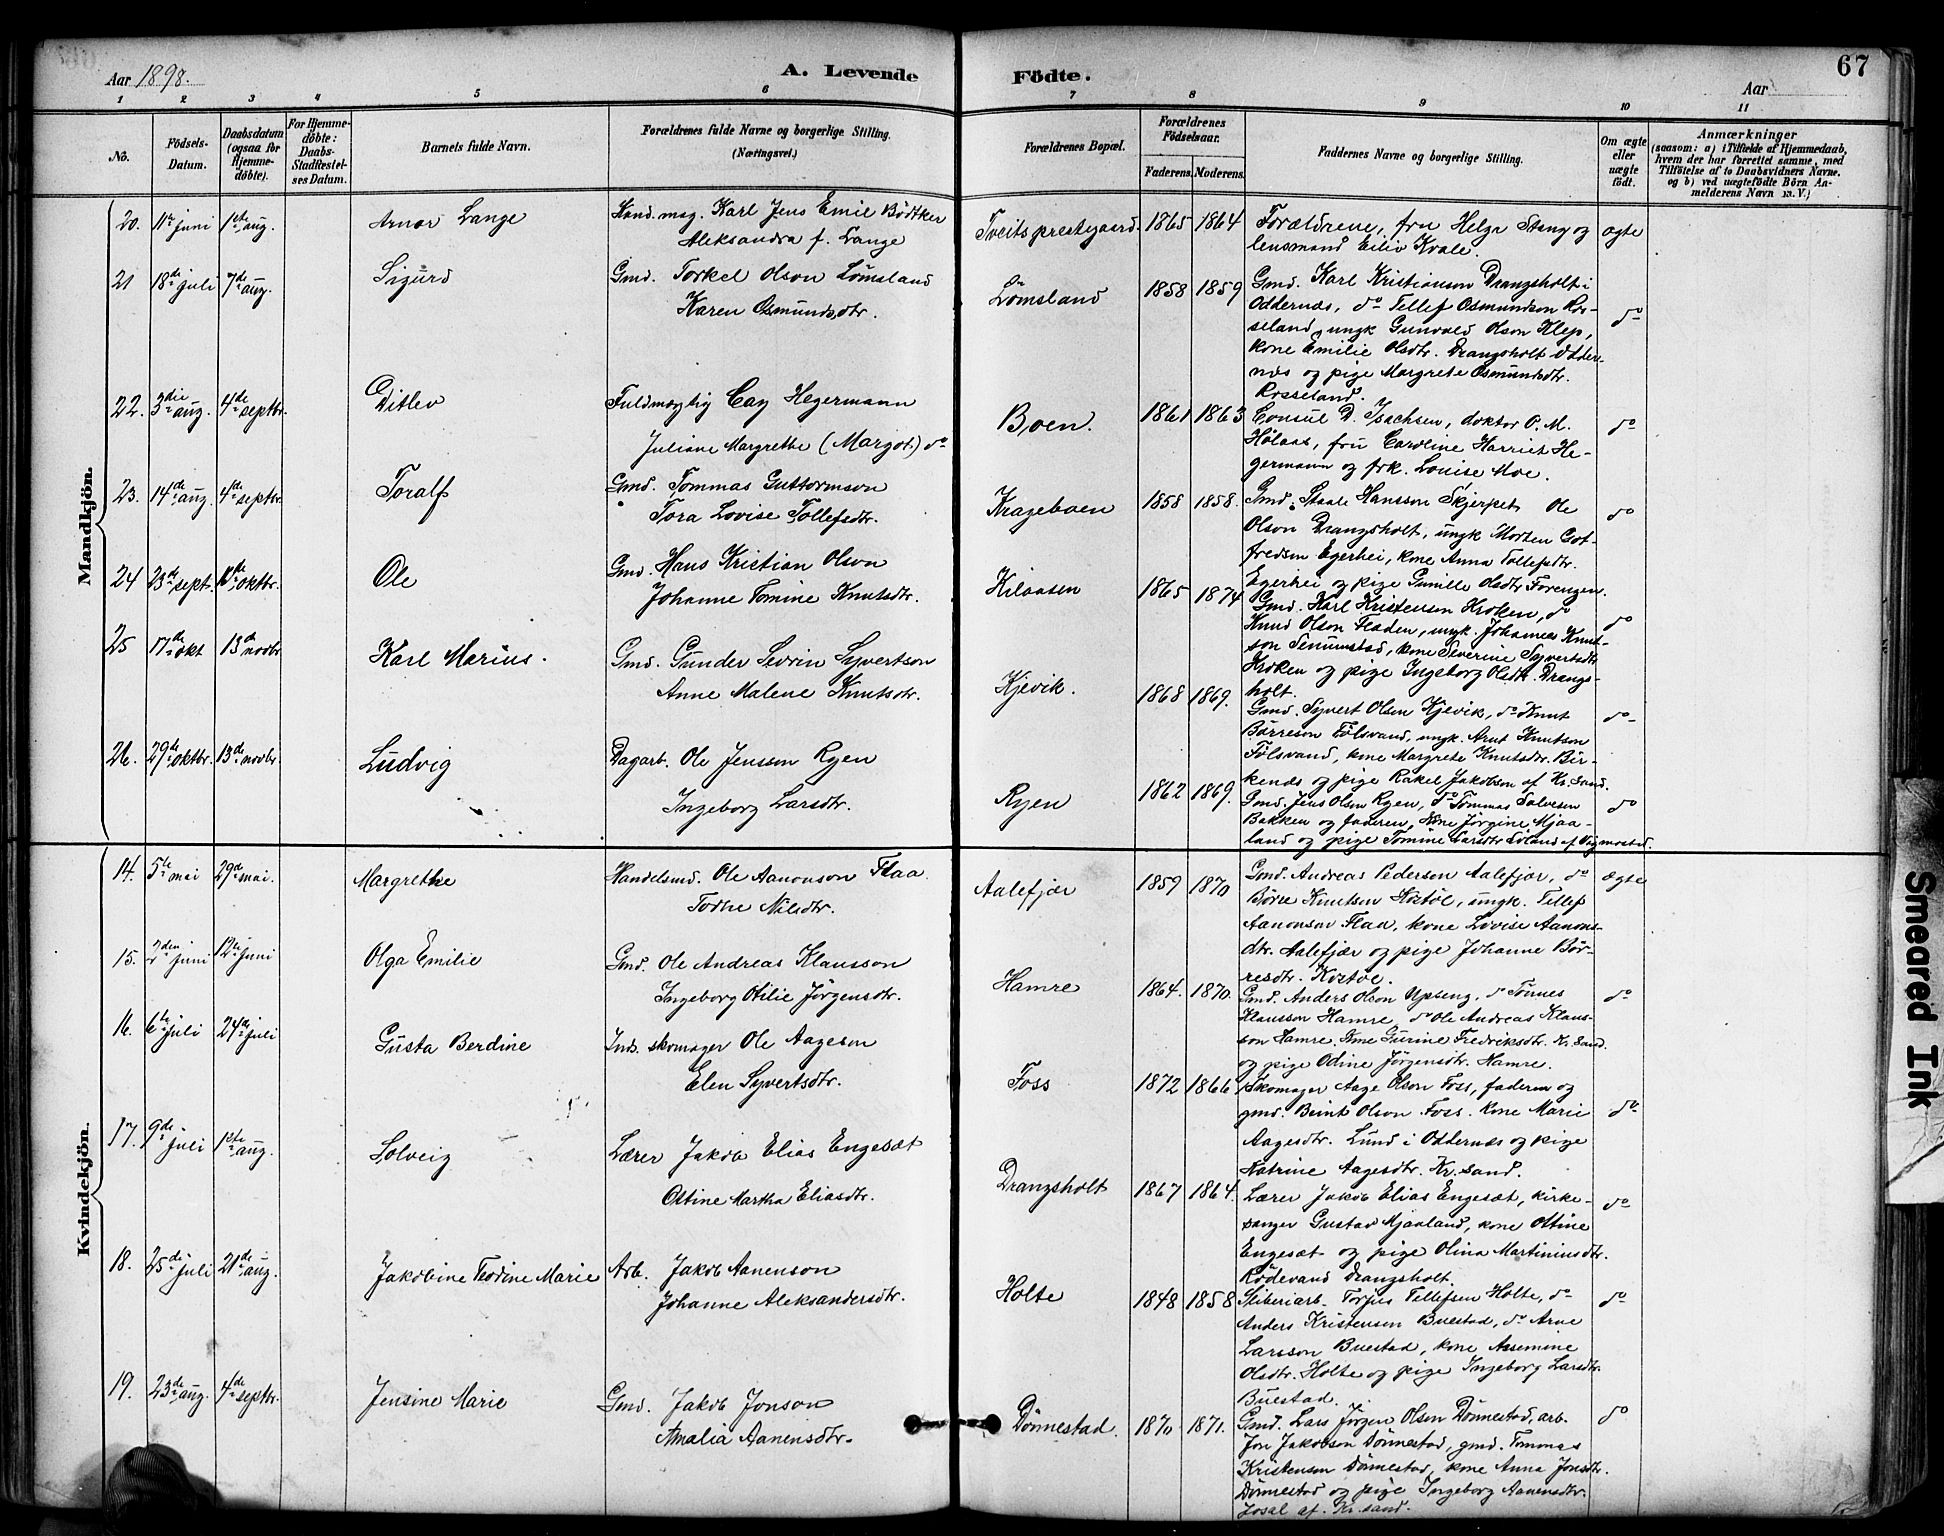 Aar 1898.
A. Levende
Födte.
Aar
67
1 2 3 4 5 6 7 8 9 10 11
No.
Födsels-
Datum.
Daabsdatum
(ogsaa for
Hjemme-
döbte).
For Hjemme-
döbte:
Daabs-
Stadfestel-
ses Datum.
Barnets fulde Navn.
Forældrenes fulde Navne og borgerlige Stilling.
(Næringsvei.)
Forældrenes Bopæl.
Forældrenes
Födselsaar.
Faderens. Moderens.
Faddernes Navne og borgerlige Stilling.
Om ægte
eller
uægte
födt.
Anmærkninger
(saasom: a) i Tilfælde af Hjemmedaab,
hvem der har forrettet samme, med
Tilföielse af to Daabsvidners Navne.
og b) ved uægtefödte Börn An-
melderens Navn m. V.)
Mandkjön.
20. 11te juni 1ste aug. Arnor Lange
Kand. mag. Karl Jens Emil Bödtker
Aleksandra f. Lange
Tveits prestegaard. 1865 1864
Forældrene, fru Helga Stang og
lensmand Eiliv Kvale.
ægte
21 18de juli 7de aug. Sigurd
Gmd. Torkel Olson Lömsland
Karen Osmundsdtr.
Lömsland 1858 1859
Gmd. Karl Kristianson Drangsholt i
Oddernæs, do Tellef Osmundson Ros-
seland, ungk Gunvald Olson Klep,
kone Emilie Olsdtr. Drangsholt Odder-
næs og pige Margrete Osmundsdtr.
Rosseland.
do
22. 3die aug. 4de septbr. Ditlev
Fuldmægtig Cay Hegermann
Juliane Margrethe (Margot) do
Boen. 1861 1863
Consul D. Isachsen, doktor O. M.
Holaas, fru Caroline Harriet He-
germann og frk. Louise Moe.
do
23. 14de aug. 4de septbr. Toralf
Gmd. Tommas Guttormson
Tora Lovise Tollefsdtr.
Krageboen 1858 1858.
Gmd. Staale Hansson Skjerpet, Ole
Olson Drangsholt, ungk Morten Got-
fredsen Egerhei, kone Anna Tollefsdtr.
Egerhei og pige Gunille Olsdtr Forengen.
do
24 23de sept. oktbr. Ole
Gmd. Hans Kristian Olson
Johanne Tomine Knutsdtr.
Kilaasen 1865 1874
Gmd. Karl Kristensen Kroken, do
Knud Olson Fladen, ungk. Johannes Knut-
son Senumstad, kone Severine Syvertsdtr
Kroken og pige Ingeborg Olsdtr. Drangs-
holt.
do
25 17de okt 13de novbr Karl Marius.
Gmd. Gunder Sevrin Syvertson
Anne Malene Knutsdtr.
Kjevik. 1868 1869.
Gmd. Syvert Olsen Kjevik, do Knut
Börreson Fölsvand, ungk. Arnt Knutson
Fölsvand, kone Margrete Knutsdtr. Bir-
kenæs og pige Rakel Jakobsen af Kr.sand.
do
26. 29de oktbr. 13de novbr Ludvig
Dagarb. Ole Jensson Ryen
Ingeborg Larsdtr.
Ryen 1862 1869.
Gmd. Jens Olsen Ryen, do Tommas Salvesen
Bakken og faderen, kone Jörgine Mjaa-
land og pige Tomine Larsdtr
do
Kvindekjön.
14. 5te mai 29de mai. Margrethe
Handelsmd. Ole Aanonson Flaa.
Todne Nilsdtr.
Aalefjær 1859 1870
Gmd. Andreas Pedersen Aalefjær, do
Börre Knutsen Kostöl, ungk. Tellef
Aanonson Flaa, kone Lovise Aanons-
dtr. Aalefjær og pige Johanne Bör-
resdtr. Kostöl.
ægte
15. 2den juni 12te juni Olga Emilie
Gmd. Ole Andreas Klausson
Ingeborg Otilie Jörgensdtr.
Hamre 1864. 1870.
Gmd. Anders Olson Upseng, do Tönnes
Klausson Hamre, do Ole Andreas Klaus-
son Hamre. Kone Gurine Fredriksdtr. Kr.sand
og pige Odine Jörgensdtr. Hamre.
do
16. 6te juli 24de juli Gusta Berdine
Inds. skomager Ole Aageson
Elen Syvertsdtr.
Foss 1872 1866
Skomager Aage Olson Foss, faderen og
gmd. Beint Olson Foss. kone Marie
Aagesdtr. Lund i Oddernæs og pige
Katrine Aagesdtr. Kr.sand.
do
17. 9de juli 1ste aug. Solveig
Lærer Jakob Elias Engesæt
Ottine Martha Eliasdtr.
Drangsholt 1867 1864.
Lærer Jakob Elias Engesæt, kirke-
sanger Gustav Mjaaland, kone Ottine
Engesæt og pige Olina Martiniusdtr.
Rödevand Drangsholt.
do
18. 25de juli 21de aug. Jakobine Teodine Marie
Arb. Jakob Aanenson
Johanne Aleksandersdtr.
Holte 1848 1858
Sliberiarb. Torjus Tellefsen Holte, do
Anders Kristensen Buestad, do Arne
Larsson Buestad, kone Assemine
Olsdtr. Holte og pige Ingeborg Larsdtr.
Buestad.
do
19. 23de aug. 4de septbr. Jensine Marie
Gmd. Jakob Jonson
Amalia Aanensdtr.
Dönnestad. 1870 1871.
Gmd. Lars Jörgen Olsen Dönnestad, arb.
Jon Jakobson Dönnestad, gmd. Tommas
Kristensen Dönnestad, kone Anna Jonsdtr.
Dönnestad og pige Ingeborg Aanensdtr.
Josal af. Kr.sand.
do
Smeared Ink